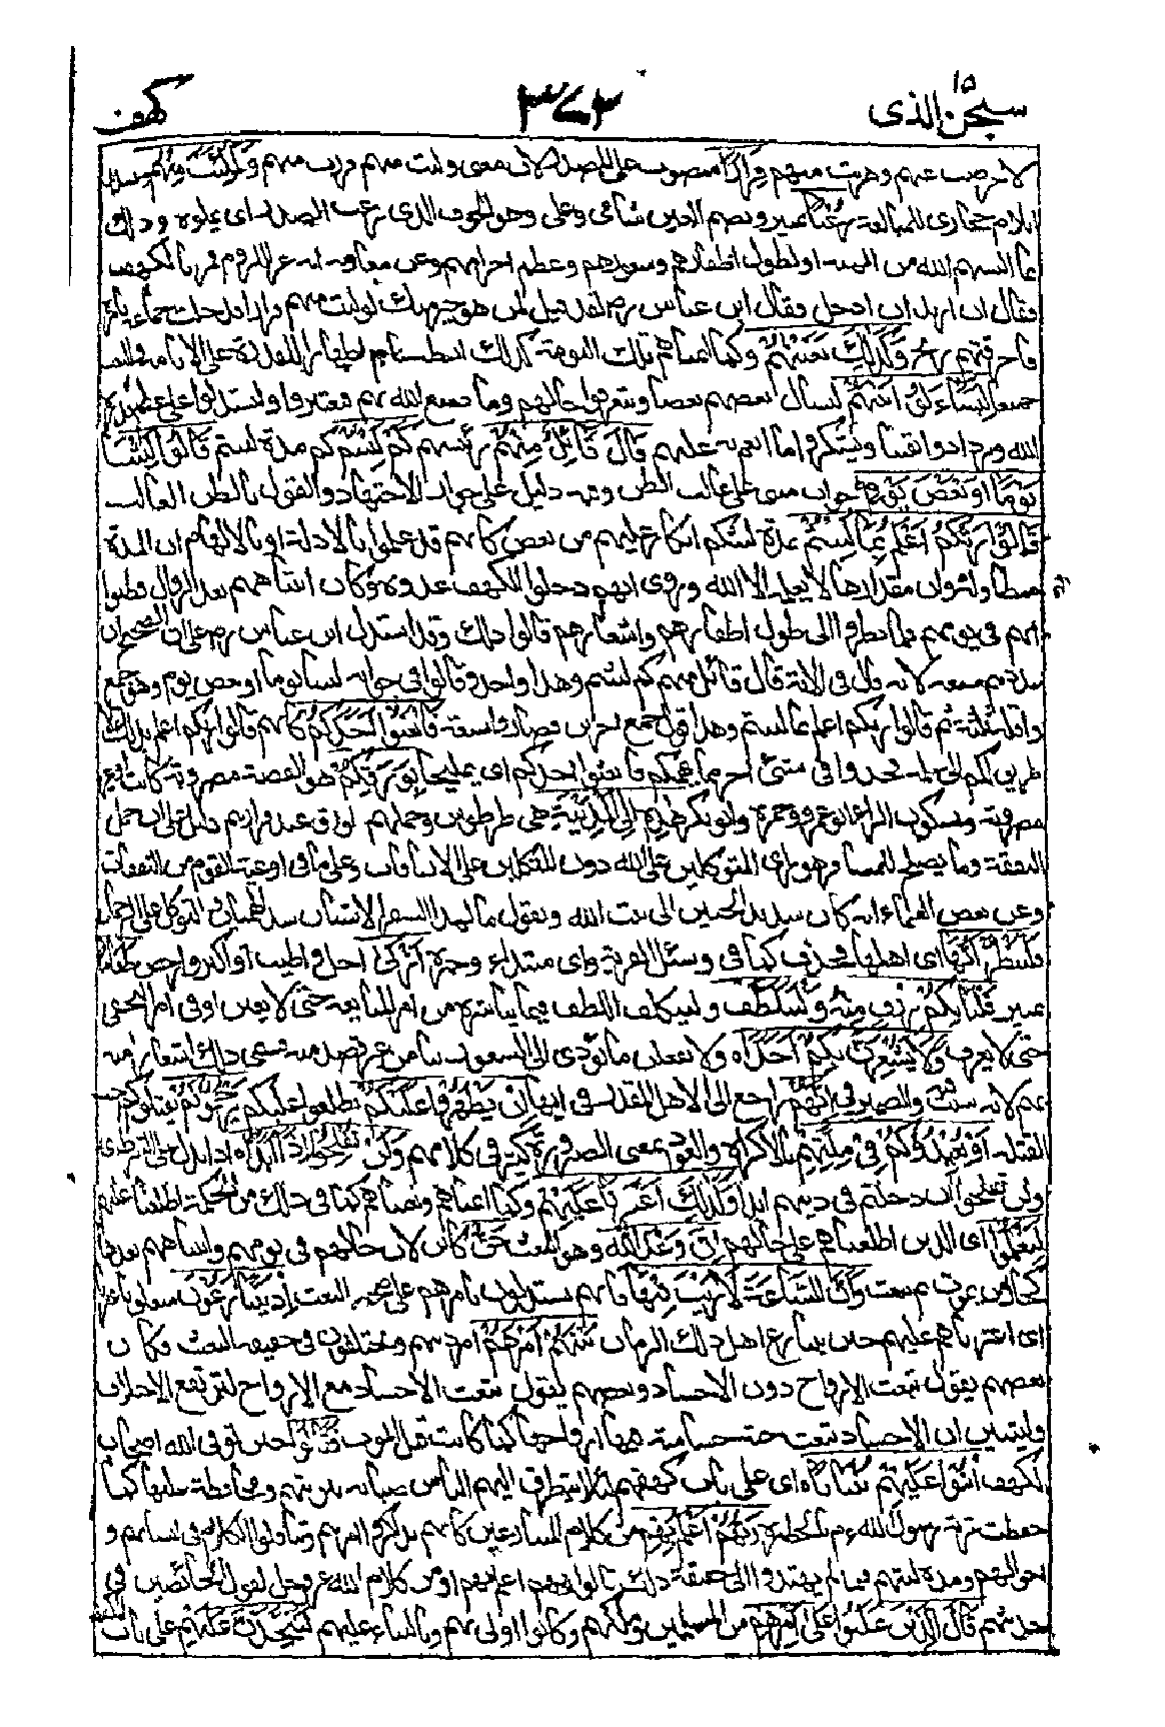 سبحن الذى ١٥ ٣٧٢ كهف
لاعرضت عنهم وهربت منهم فِرَارًا منصوب على المصدر لان معنى وليت منهم فررت منهم وَلَمُلِئْتَ مِنْهُمْ وبتشديد
اللام حجازى للمبالغة رُعْبًا تمييز وبضم العين شامى وعلى وهو الخوف الذى يرعب الصدر اى يملؤه وذلك
لما البسهم الله من الهيبة او لطول اظفارهم وشعورهم وعظم اجرامهم وعن معاوية انه غزا الروم فمر بالكهف
فقال انى اريد ان ادخل فقال ابن عباس رض لقد قيل لمن هو خير منك لوليت منهم فرارا فدخلت جماعة بامره
فاحرقتهم ريح وَكَذٰلِكَ بَعَثْنٰهُمْ وكما انمناهم تلك النومة كذلك ايقظناهم اظهارا للقدرة على الانامة والبعث
جميعا لِيَتَسَاءَلُوْا بَيْنَهُمْ ليسال بعضهم بعضا ويتعرفوا حالهم وما صنع الله بهم فيعتبروا ويستدلوا على عظم قدرة
الله ويزدادوا يقينا ويشكروا ما انعم به عليهم قَالَ قَائِلٌ مِنْهُمْ رئيسهم كَمْ لَبِثْتُمْ كم مدة لبثتم قَالُوْا لَبِثْنَا
يَوْمًا اَوْ بَعْضَ يَوْمٍ جواب مبنى على غالب الظن وفيه دليل على جواز الاجتهاد والقول بالظن الغالب
قَالُوْا رَبُّكُمْ اَعْلَمُ بِمَا لَبِثْتُمْ بمدة لبثكم انكار عليهم من بعضهم كانهم قد علموا بالادلة او بالالهام ان المدة
متطاولة وان مقدارها لا يعلمه الا الله وروى انهم دخلوا الكهف غدوة وكان انتباههم بعد الزوال فظنوا
انهم فى يومهم فلما نظروا الى طول اظفارهم واشعارهم قالوا ذلك وقد استدل ابن عباس رض على ان الصحيح ان
عددهم سبعة لانه قال فى الاية قال قائل منهم كم لبثتم وهذا واحد وقالوا فى جوابه لبثنا يوما او بعض يوم وهو جمع
واقله ثلثة ثم قالوا ربكم اعلم بما لبثتم وهذا قول جمع اخرين فصاروا سبعة فَابْعَثُوْا اَحَدَكُمْ كانهم قالوا ربكم اعلم بذلك لا
طريق لكم الى علمه فخذوا فى شئ اخر مما يهمكم فابعثوا احدكم اى يمليخا بِوَرِقِكُمْ هى الفضة مضروبة كانت او غير
مضروبة وبسكون الراء ابو عمرو وحمزة وابو بكر هٰذِهٖ اِلَى الْمَدِيْنَةِ هى طرطوس وحملهم الورق عند فرارهم دليل على ان حمل
النفقة وما يصلح للمسافر هو راى المتوكلين على الله دون المتكلين على الاتفاقات وعلى ما فى اوعية القوم من النفقات
وعن بعض العلماء انه كان شديد الحنين الى بيت الله ويقول ما لهذا السفر الا شيئان شد الهميان والتوكل على الرحمان
فَلْيَنْظُرْ اَيُّهَا اى اهلها فحذف كما فى وسئل القرية واى مبتداء وخبره اَزْكٰى احل واطيب او اكثر وارخص طَعَامًا
تمييز فَلْيَاْتِكُمْ بِرِزْقٍ مِنْهُ وَلْيَتَلَطَّفْ وليتكلف اللطف فيما يباشره من امر المبايعة حتى لا يغبن او فى امر التخفى
حتى لا يعرف وَلَا يُشْعِرَنَّ بِكُمْ اَحَدًا ه ولا يفعلن ما يؤدى الى الشعور بنا من غير قصد منه فسمى ذلك اشعارا منه
بهم لانه سبب والضمير فى اِنَّهُمْ راجع الى الاهل المقدر فى ايها اِنْ يَظْهَرُوْا عَلَيْكُمْ يطلعوا عليكم يَرْجُمُوْكُمْ يقتلوكم اخبث
القتلة اَوْ يُعِيْدُوْكُمْ فِىْ مِلَّتِهِمْ بالاكراه والعود بمعنى الصيرورة كثير فى كلامهم وَلَنْ تُفْلِحُوْا اِذًا اَبَدًا ه اذا يدل على الشرط اى
ولن تفلحوا ان دخلتم فى دينهم ابدا وَكَذٰلِكَ اَعْثَرْنَا عَلَيْهِمْ وكما انمناهم وبعثناهم لما فى ذلك من الحكمة اطلعنا عليهم
لِيَعْلَمُوْا اى الذين اطلعناهم على حالهم اَنَّ وَعْدَ اللهِ وهو البعث حَقٌّ كائن لان حالهم فى نومهم وانتباههم بعدها
كحال من يموت ثم يبعث وَاَنَّ السَّاعَةَ لَا رَيْبَ فِيْهَا فانهم يستدلون بامرهم على صحة البعث اِذْ يَتَنَازَعُوْنَ متعلق باعثرنا
اى اعثرناهم عليهم حين يتنازع اهل ذلك الزمان بَيْنَهُمْ اَمْرَهُمْ امر دينهم ويختلفون فى حقيقة البعث فكان
بعضهم يقول تبعث الارواح دون الاجساد وبعضهم يقول تبعث الاجساد مع الارواح ليرتفع الاختلاف
وليتبين ان الاجساد تبعث حية حساسة فيها ارواحها كما كانت قبل الموت فَقَالُوْا حين توفى الله اصحاب
الكهف ابْنُوْا عَلَيْهِمْ بُنْيَانًا ه اى على باب كهفهم لئلا يتطرق اليهم الناس ضنا بتربتهم ومحافظة عليها كما
حفظت تربة رسول الله عم بالحظيرة رَبُّهُمْ اَعْلَمُ بِهِمْ من كلام المتنازعين كانهم تذاكروا امرهم وتناقلوا الكلام فى انسابهم و
احوالهم ومدة لبثهم فلما لم يهتدوا الى حقيقة ذلك قالوا ربهم اعلم بهم او من كلام الله عز وجل رد لقول الخائضين فى
حديثهم قَالَ الَّذِيْنَ غَلَبُوْا عَلٰى اَمْرِهِمْ من المسلمين وملكهم وكانوا اولى بهم وبالبناء عليهم لَنَتَّخِذَنَّ عَلَيْهِمْ على باب